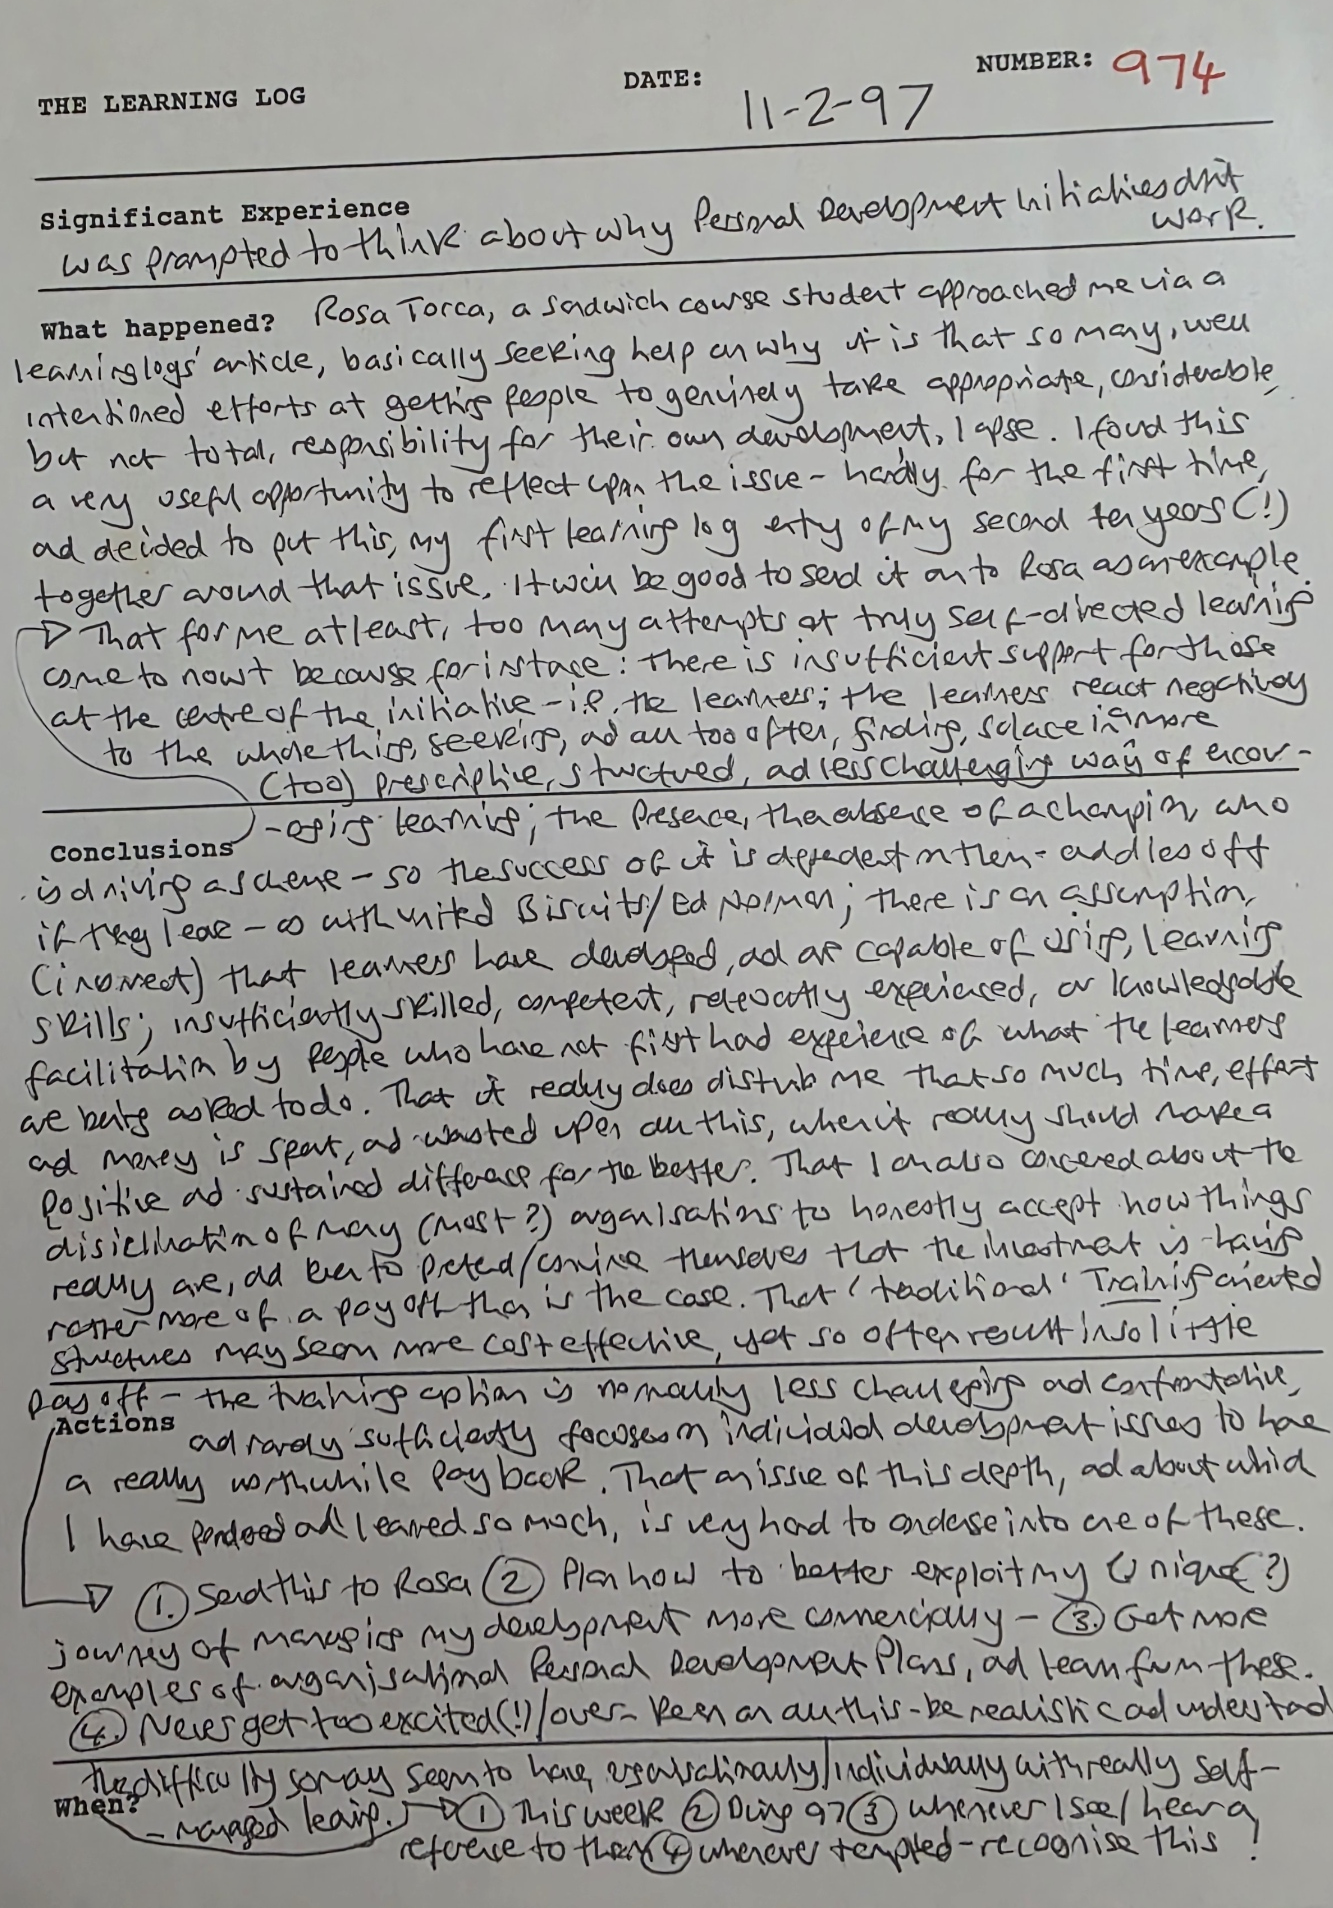 THE LEARNING LOG DATE: 11-2-97 NUMBER: 974
Significant Experience
was prompted to think about why Personal Development Initiatives don't
work.
What happened? Rosa Torca, a sandwich course student approached me via a
learning logs' article, basically seeking help on why it is that so many, well
intentioned efforts at getting people to genuinely take appropriate, considerable,
but not total, responsibility for their own development, lapse. I found this
a very useful opportunity to reflect upon the issue - hardly for the first time,
and decided to put this, my first learning log entry of my second ten years (!)
together around that issue. It will be good to send it on to Rosa as an example.
→ That for me at least, too many attempts at truly self-directed learning
come to nowt because for instance: there is insufficient support for those
at the centre of the initiative - i.e. the learners; the learners react negatively
to the whole thing, seeking, and all too often, finding, solace in a more
(too) prescriptive, structured, and less challenging way of encour-
-aging learning; the presence, then absence of a champion, who
Conclusions
is driving a scheme - so the success of it is dependent on them - and dies off
if they leave - as with United Biscuits/Ed Norman; there is an assumption,
(incorrect) that learners have developed, and are capable of using, learning
skills; insufficiently skilled, competent, relevantly experienced, or knowledgeable
facilitation by people who have not first had experience of what the learners
are being asked to do. That it really does disturb me that so much time, effort
and money is spent, and wasted upon all this, when it really should make a
positive and sustained difference for the better. That I am also concerned about the
disinclination of many (most?) organisations to honestly accept how things
really are, and even to pretend/convince themselves that the investment is having
rather more of a pay off than is the case. That 'traditional' Training oriented
structures may seem more cost effective, yet so often result in so little
pay off - the training option is normally less challenging and confrontative,
Actions
and rarely sufficiently focuses on individual development issues to have
a really worthwhile payback. That an issue of this depth, and about which
I have pondered and learned so much, is very hard to condense into one of these.
→ ①. Send this to Rosa ② Plan how to better exploit my unique(?)
journey of managing my development more commercially - ③. Get more
examples of organisational Personal Development Plans, and learn from these.
④. Never get too excited(!)/over-keen on all this - be realistic and understand
the difficulty so many seem to have, organisationally/individually with really self-
When?
-managed learning. → ① This week ② During 97 ③ whenever I see/hear a
reference to them ④ whenever tempted - recognise this!